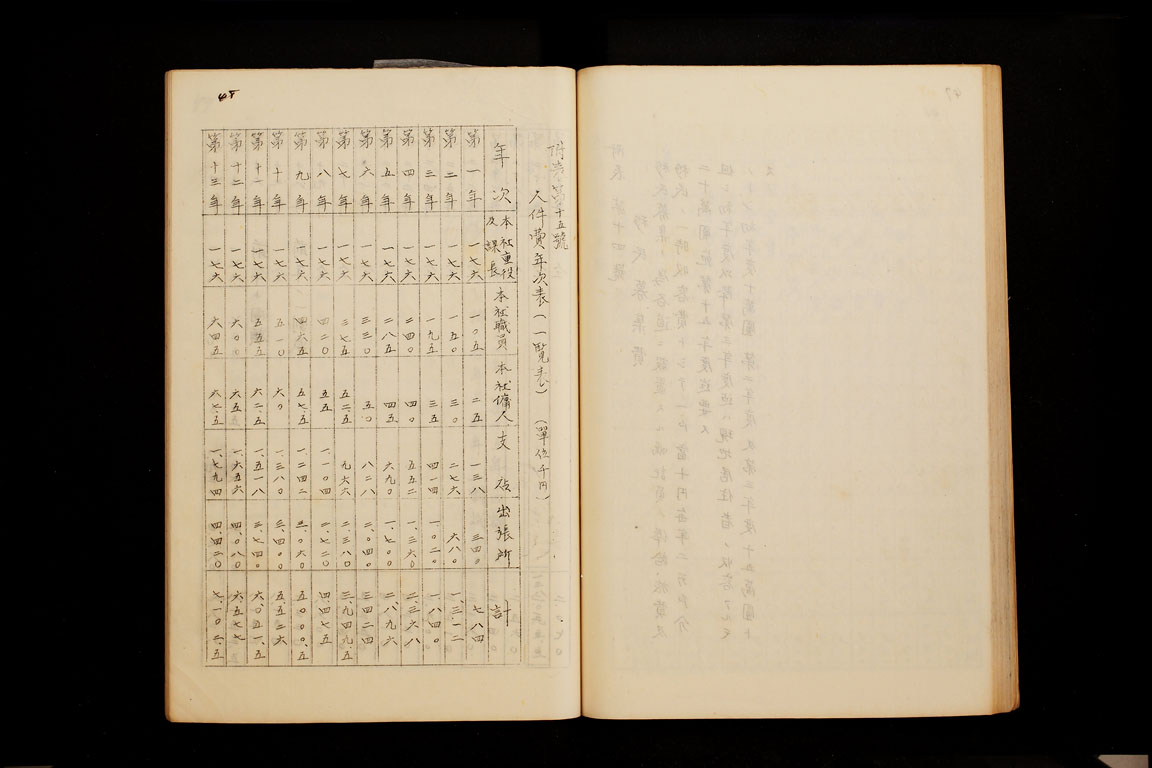 48
附表第十五號
人件費年次表(一覧表) (單位千円)
年次 本社重役及課長 本社職員 本社傭人 支店 出張所 計
第一年 一七六 一〇五 二五 一三八 三四〇 七八四
第二年 一七六 一五〇 三〇 二七六 六八〇 一、三一二
第三年 一七六 一九五 三五 四一四 一、〇二〇 一、八四〇
第四年 一七六 二四〇 四〇 五五二 一、三六〇 二、三六八
第五年 一七六 二八五 四五 六九〇 一、七〇〇 二、八九六
第六年 一七六 三三〇 五〇 八二八 二、〇四〇 三四二四
第七年 一七六 三七五 五二.五 九六六 二、三八〇 三、九四九.五
第八年 一七六 四二〇 五五 一、一〇四 二、七二〇 四、四七五
第九年 一七六 四六五 五七.五 一、二四二 三、〇六〇 五、〇〇〇.五
第十年 一七六 五一〇 六〇 一、三八〇 三、四〇〇 五、五二六
第十一年 一七六 五五五 六二.五 一、五一八 三、七四〇 六、〇五一.五
第十二年 一七六 六〇〇 六五 一、六五六 四、〇八〇 六、五七七
第十三年 一七六 六四五 六七.五 一、七九四 四、四二〇 七、一〇二.五